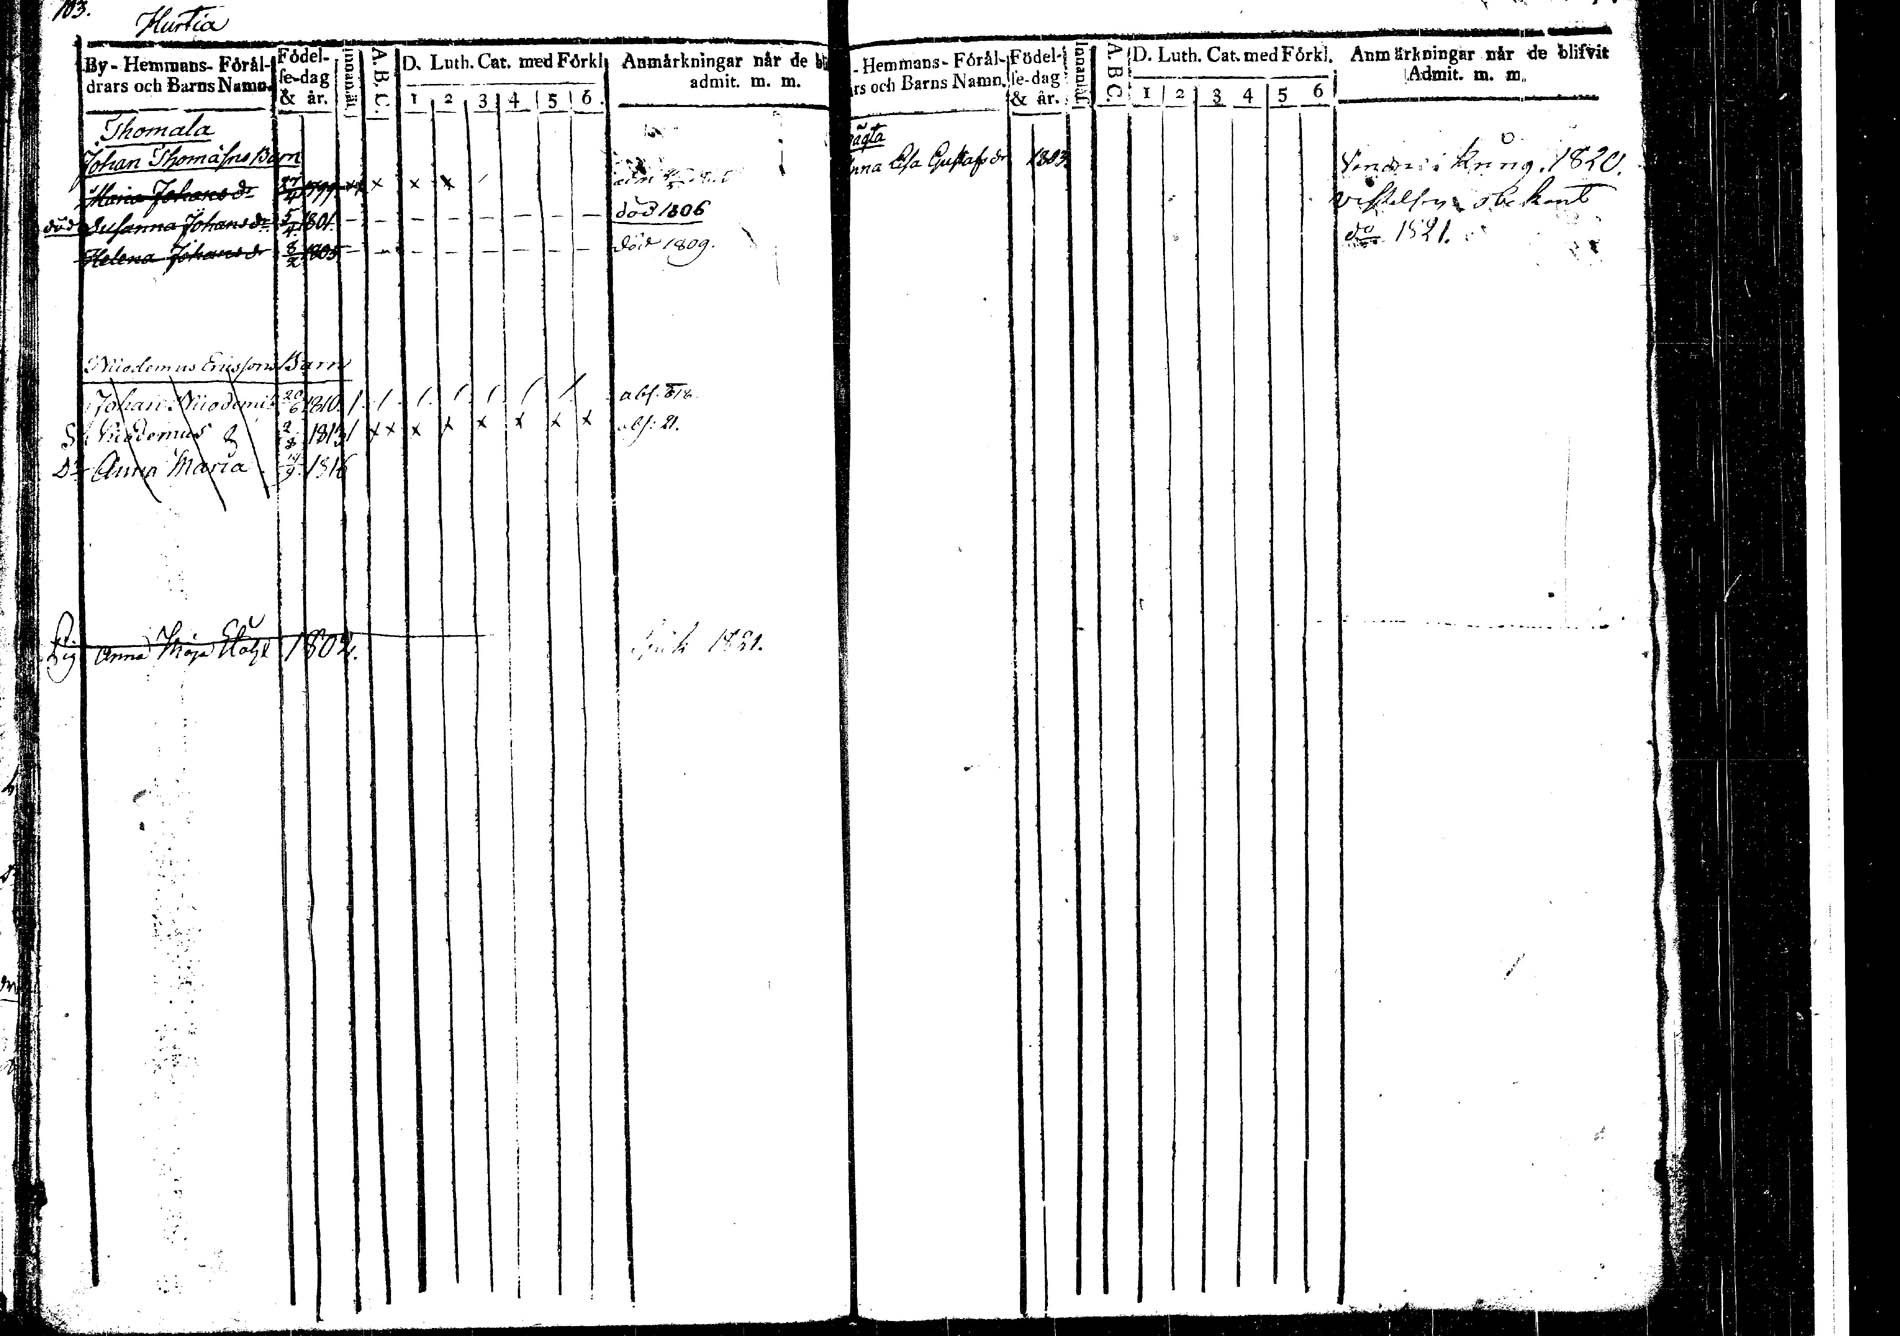 103.
Hurtia
By- Hemmans- Föräl-
drars och Barns Namn.
Födel-
se-dag
& år.
Innanläs.
A. B. C.
D. Luth. Cat. med Förkl.
1 2 3 4 5 6.
Anmärkningar når de bli
admit. m. m.
Thomala
Johan Thomässons Barn
Maria Johansdr 27/4 1799 x x x x /
död Susanna Johansdr 5/4 1801. – – – – – – – – död 1806
Helena Johansdr 8/2 1805 – – – – – – – – död 1809.
Nicodemus Ericssons Barn
Johan Nicodemi 20/6 1810. / / / / / / / / abs. 818.
S. Nicodemus 2/8 1813 / x x x x x x x x abs: 21.
Dr Anna Maria. 19/9 1816
Pig Anna Maja 1802. 1821.
- Hemmans- Föräl-
rs och Barns Namn.
Födel-
se-dag
& år.
Innanläs.
A. B. C.
D. Luth. Cat. med Förkl.
1 2 3 4 5 6
Anmärkningar når de blifvit
Admit. m. m.
nna Lisa Gustafsdr 1803
i kung. 1820.
vistelsen obekant
do 1821.